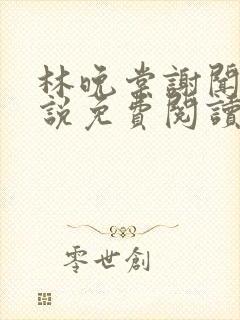 林晚棠謝聞
說免費閱讀
零世創